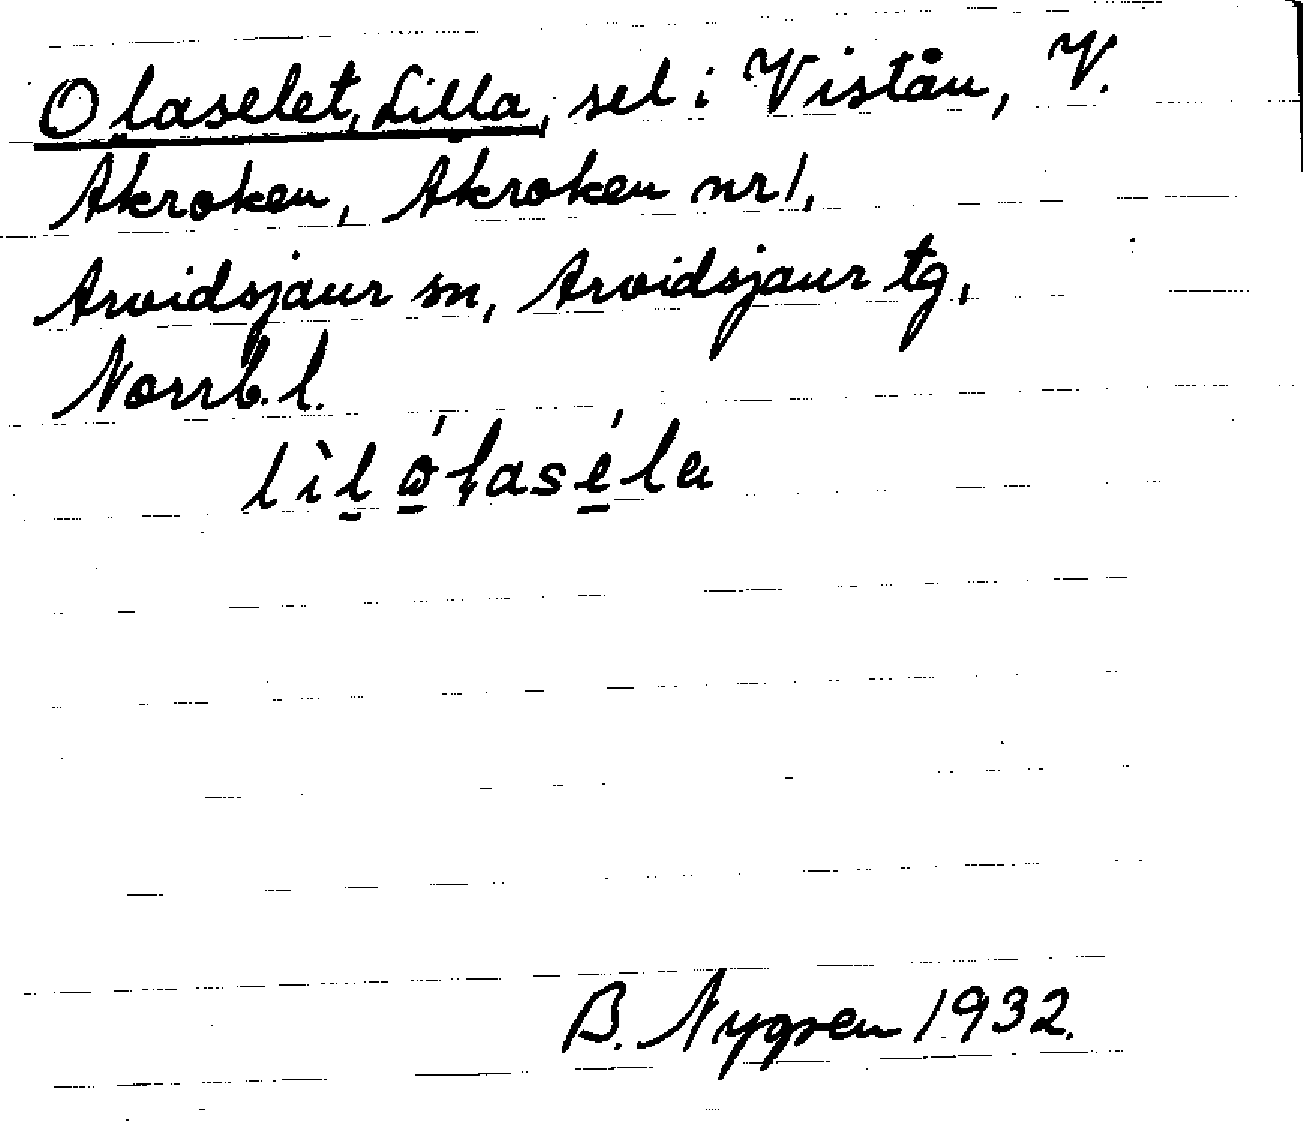 Olaselet, Lilla, sel i Viståu, V.
Akroken, Akroken nr 1,
Arvidsjaur sn, Arvidsjaur tg,
Norrb. l.
B. Nygren 1932.